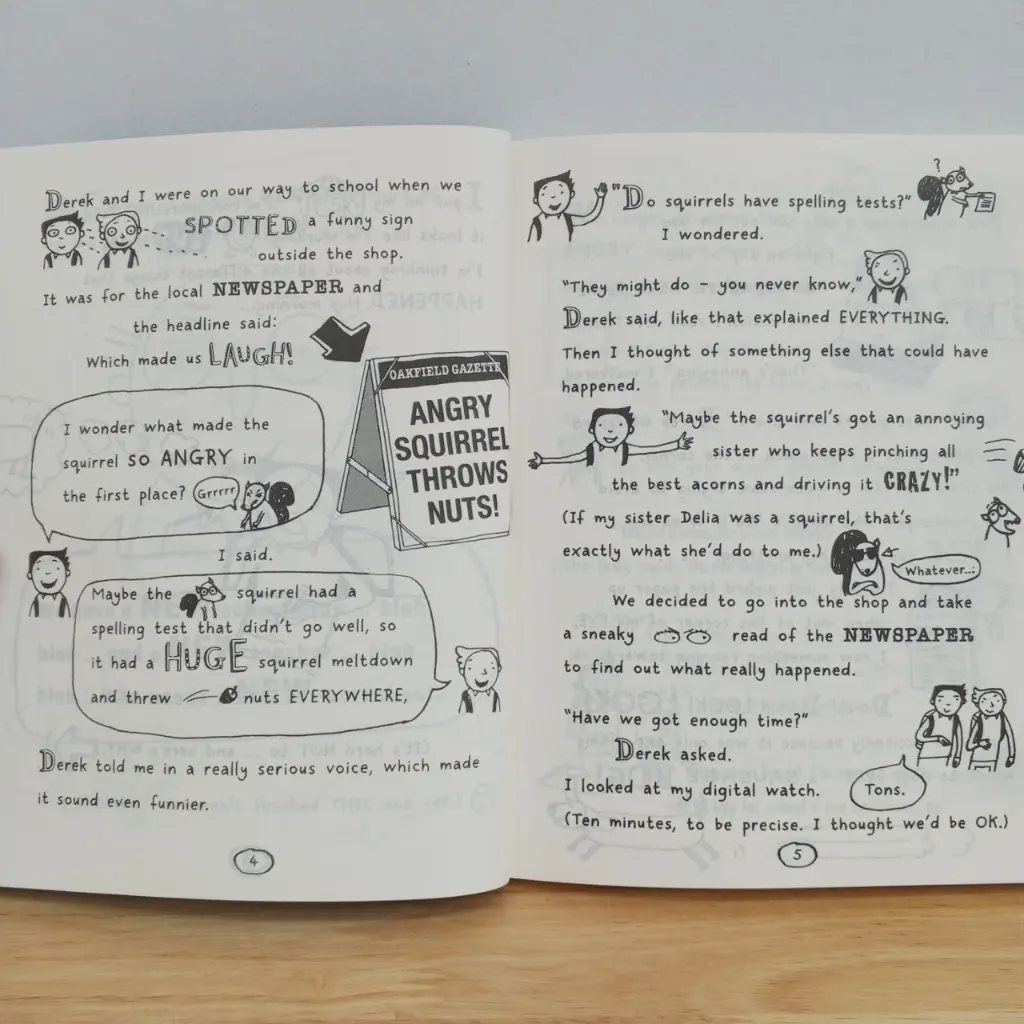 Derek and I were on our way to school when we
SPOTTED a funny sign
outside the shop.
It was for the local NEWSPAPER and
the headline said:
Which made us LAUGH!
OAKFIELD GAZETTE
ANGRY
SQUIRREL
THROWS
NUTS!
I wonder what made the
squirrel SO ANGRY in
the first place? Grrrrr
I said.
Maybe the squirrel had a
spelling test that didn't go well, so
it had a HUGE squirrel meltdown
and threw nuts EVERYWHERE,
Derek told me in a really serious voice, which made
it sound even funnier.
4
?
"Do squirrels have spelling tests?"
I wondered.
"They might do - you never know,"
Derek said, like that explained EVERYTHING.
Then I thought of something else that could have
happened.
"Maybe the squirrel's got an annoying
sister who keeps pinching all
the best acorns and driving it CRAZY!"
(If my sister Delia was a squirrel, that's
exactly what she'd do to me.)
Whatever...
We decided to go into the shop and take
a sneaky read of the NEWSPAPER
to find out what really happened.
"Have we got enough time?"
Derek asked.
I looked at my digital watch. Tons.
(Ten minutes, to be precise. I thought we'd be OK.)
5